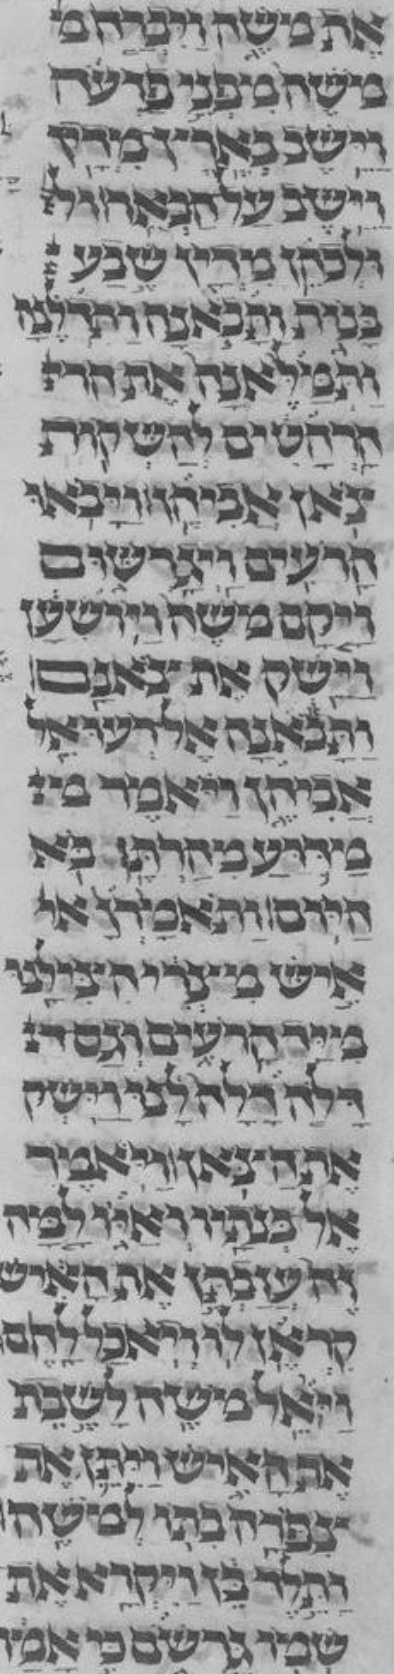 את משה ויברח מ
משה מפני פרעה
וישב בארץ מדין
וישב על הבאר ול
ולכהן מדין שבע
בנות ותבאנה ותדלנה
ותמלאנה את הר
הרהטים להשקות
צאן אביהן ויבאו
הרעים ויגרשום
ויקם משה ויושען
וישק את צאנם
ותבאנה אל רעואל
אביהן ויאמר מ
מדוע מהרתן בא
היום ותאמרן אי
איש מצרי הצילנו
מיד הרעים וגם ד
דלה דלה לנו וישק
את הצאן ויאמר
אל בנתיו ואיו למה
זה עזבתן את האיש
קראן לו ויאכל לחם
ויואל משה לשבת
את האיש ויתן את
צפרה בתו למשה
ותלד בן ויקרא את
שמו גרשם כי אמר